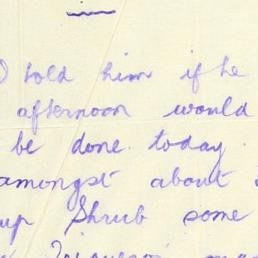 told him if he
afternoon would
be done today.
amongst about
up Shrub some